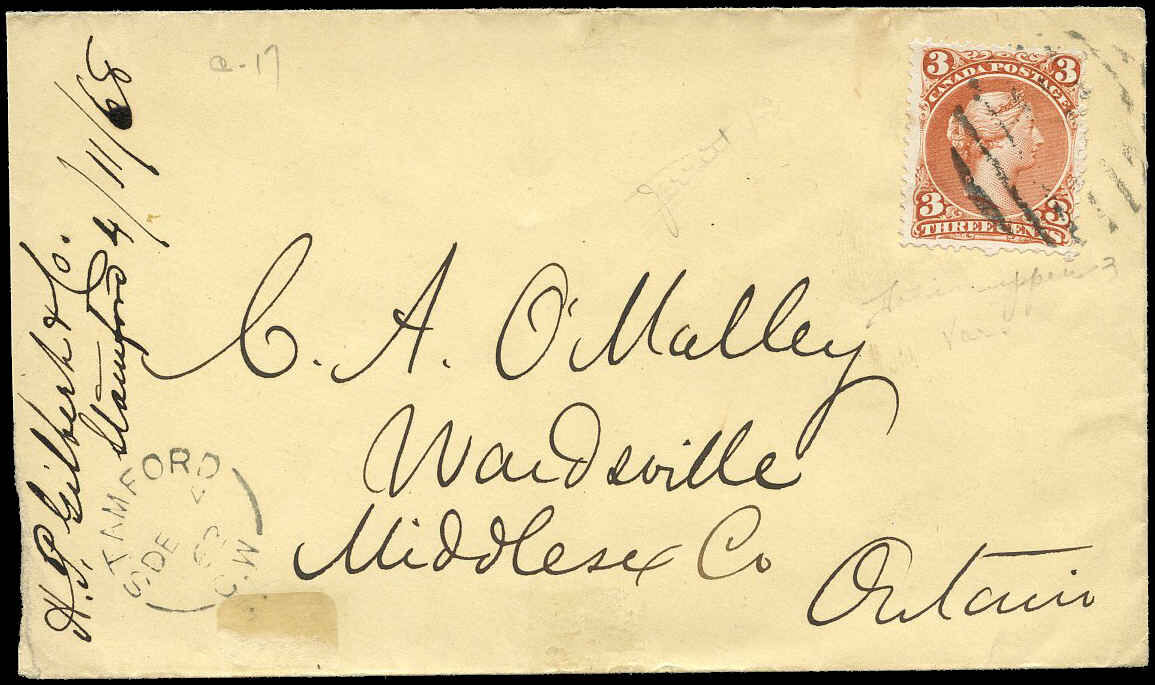 a-17
3 CANADA POSTAGE 3
3 3
THREE CENTS
C. A. O'Malley
Wardsville
Middlesex Co
Ontario
H. J. Gilbert & Co.
Stamford 4/11/68
STAMFORD
DE 4
68
C.W
upper 3
Var.